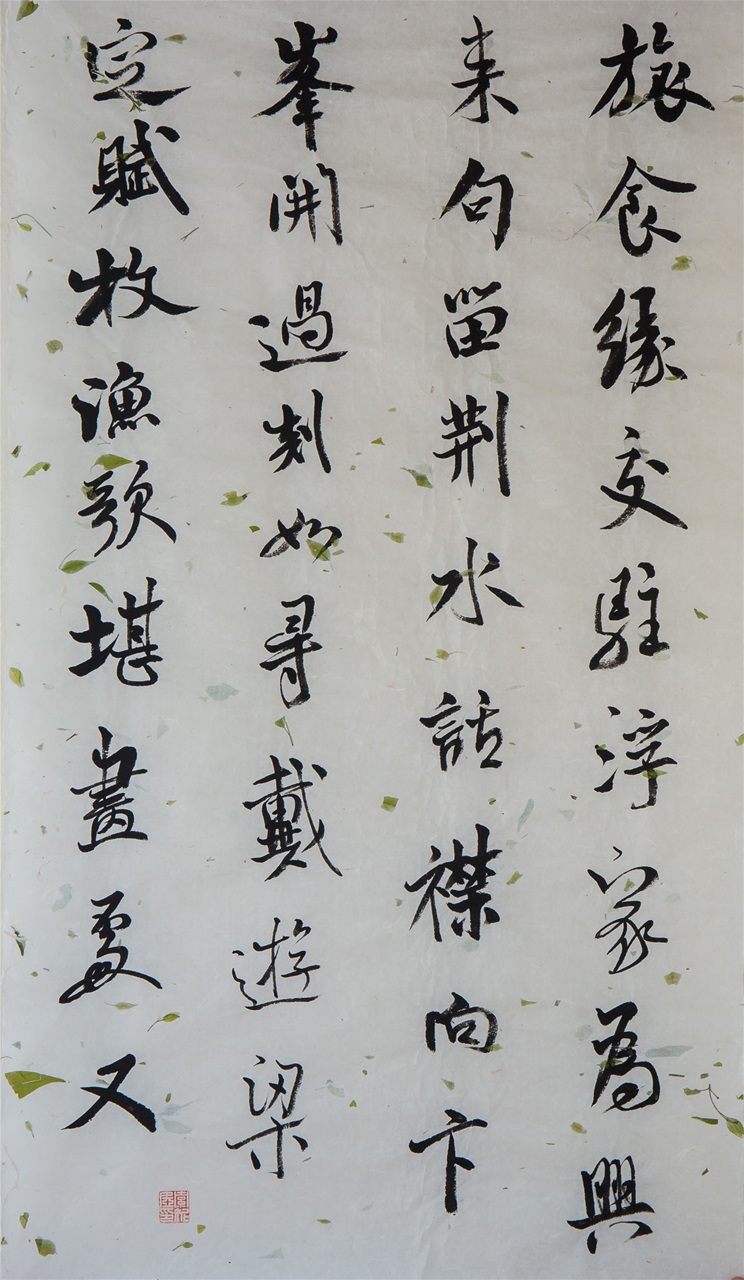 旅食緣交駐浮家為興
来句留荆水話襟向卞
峯開過剡如尋戴遊梁
定賦枚漁歌堪畫處又